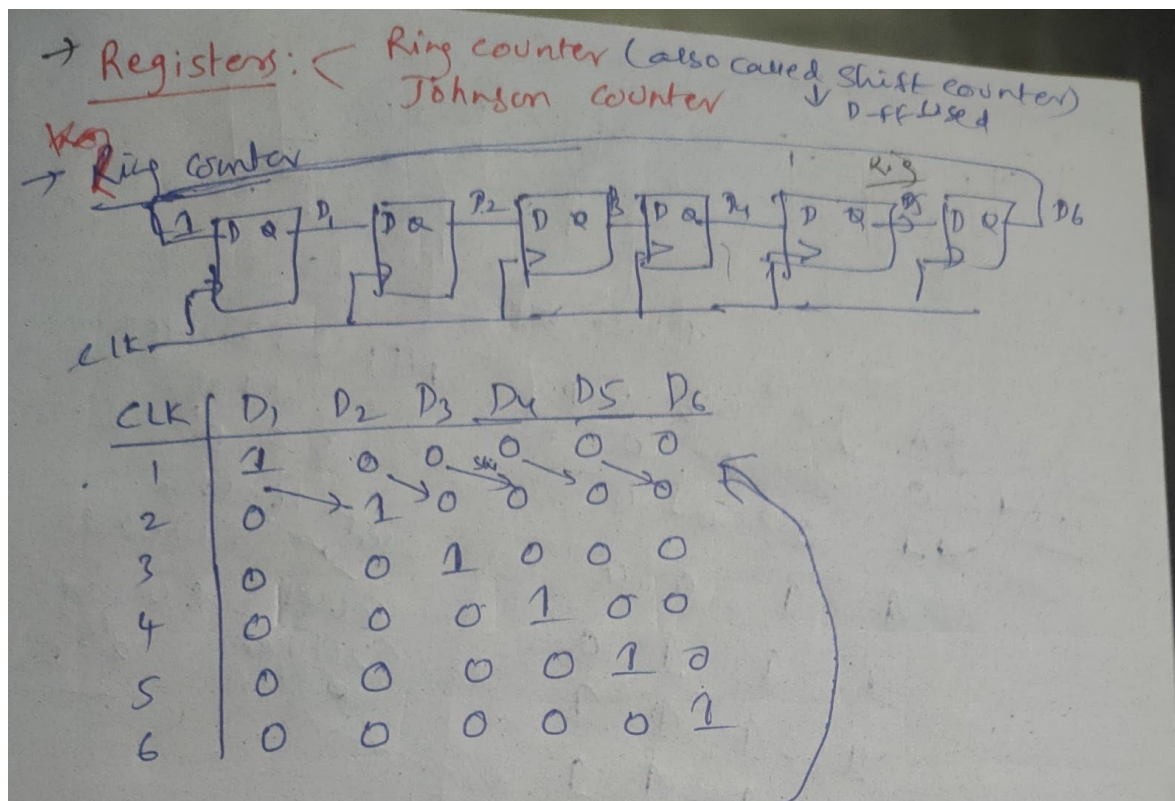 → Registers: < Ring counter (also called shift counter)
Johnson counter ↓ D-ff used
→ Ring counter
1 D Q D1 D Q D2 D Q D3 D Q D4 D Q D5 D Q D6
clk
CLK D1 D2 D3 D4 D5 D6
1 1 0 0 0 0 0
2 0 1 0 0 0 0
3 0 0 1 0 0 0
4 0 0 0 1 0 0
5 0 0 0 0 1 0
6 0 0 0 0 0 1